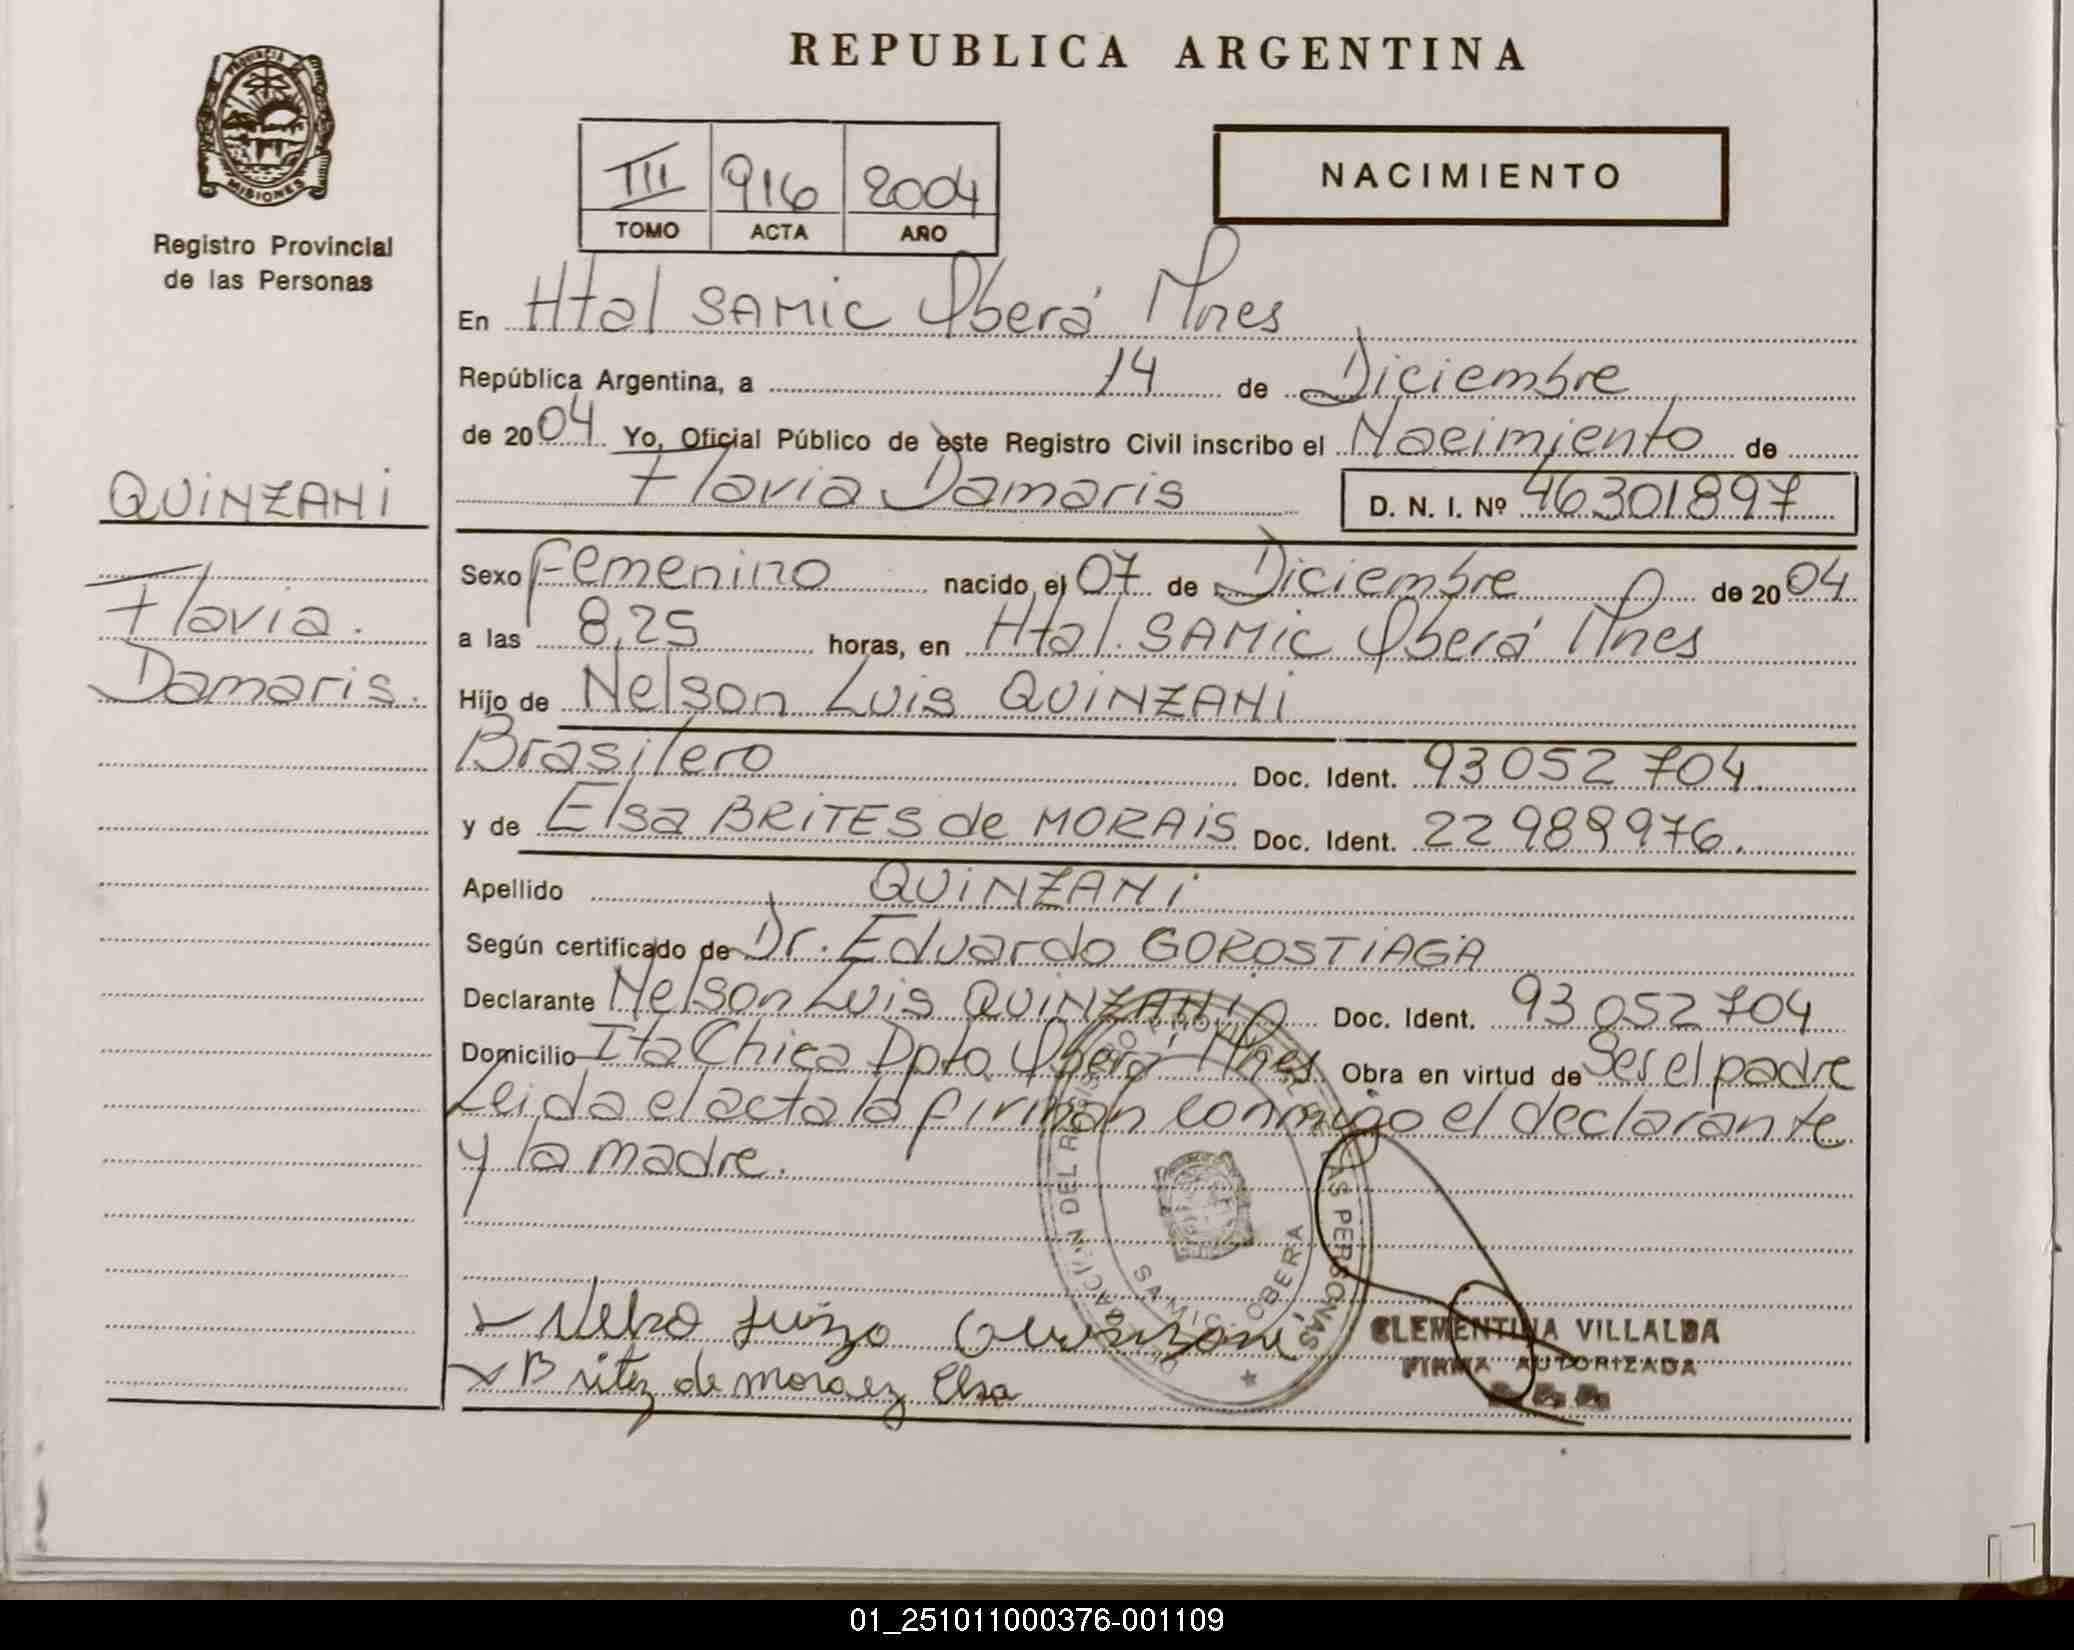 REPUBLICA ARGENTINA
PROVINCIA DE
MISIONES
Registro Provincial
de las Personas
III 916 2004
TOMO ACTA AÑO
NACIMIENTO
En Htal SAMIC Oberá Mnes
República Argentina, a 14 de Diciembre
de 2004 Yo, Oficial Público de este Registro Civil inscribo el Nacimiento de
Flavia Damaris D. N. I. Nº 46301897
QUINZANI
Flavia.
Damaris.
Sexo Femenino nacido el 07 de Diciembre de 2004
a las 8,25 horas, en Htal. SAMIC Oberá Mnes
Hijo de Nelson Luis QUINZANI
Brasilero Doc. Ident. 93052704.
y de Elsa BRITES de MORAIS Doc. Ident. 22989976.
Apellido QUINZANI
Según certificado de Dr. Eduardo GOROSTIAGA
Declarante Nelson Luis QUINZANI Doc. Ident. 93052704
Domicilio Ita Chica Dpto Oberá Mnes Obra en virtud de Ser el padre
Leida el acta la firman conmigo el declarante
y la madre.
DEL REGISTRO PROVINCIAL DE LAS PERSONAS
SAMIC OBERA
Quinzani
Britez de moraez Elsa
CLEMENTINA VILLALBA
FIRMA AUTORIZADA
01_251011000376-001109